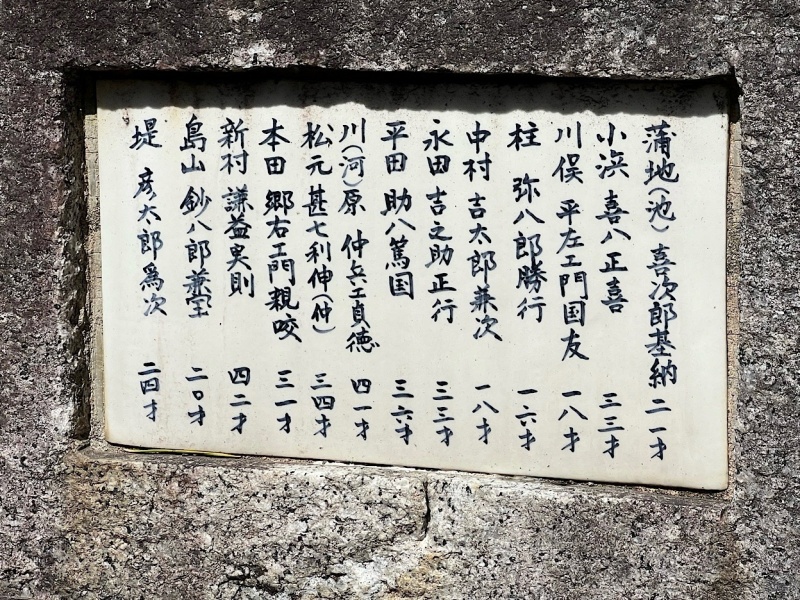 蒲地(池)喜次郎基納 二一才
小浜 喜八正喜 三三才
川俣 平左エ門国友 一八才
柱 弥八郎勝行 一六才
中村 吉太郎兼次 一八才
永田 吉之助正行 三三才
平田 助八篤国 三六才
川(河)原 仲兵エ貞徳 四一才
松元 甚七利伸(仲) 三四才
本田 郷右エ門親咬 三一才
新村 謙益実則 四二才
島山 鈔八郎兼宝 二〇才
堤 彦太郎為次 二四才